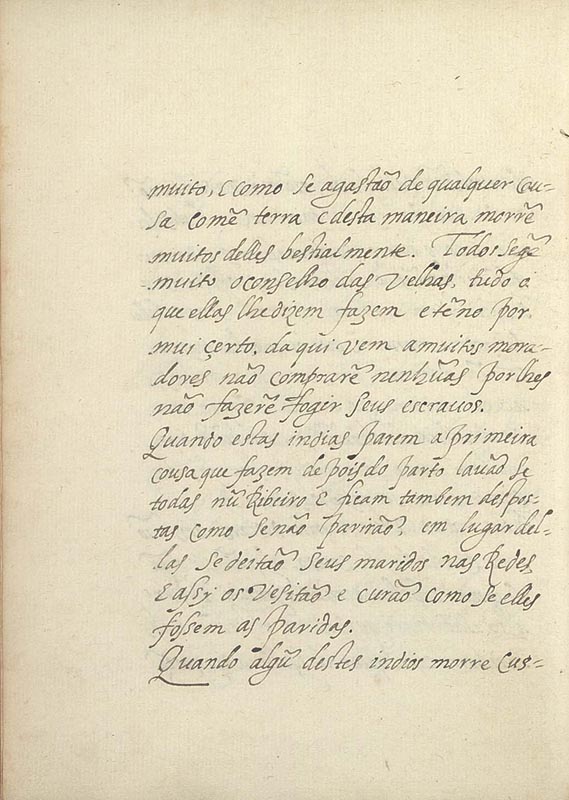 muito, E como se agastaõ de qualquer cou=
sa comẽ terra E desta maneira morrẽ
muitos delles bestialmente. Todos segẽ
muito o conselho das velhas, tudo o
que ellas lhe dizem fazem e tẽno por
mui çerto. da qui vem a muitos mora=
dores não comprarẽ nenhũas por lhes
não fazerẽ fogir seus escravos.
Quando estas indias parem a primeira
cousa que fazem depois do parto lavão se
todas nũ Ribeiro E ficam tambem despos=
tas como se não parirão, em lugar del=
las se deitaõ seus maridos nas Redes,
E assy os vesitaõ e curão como se elles
fossem as paridas.
Quando algũ destes indios morre cus=